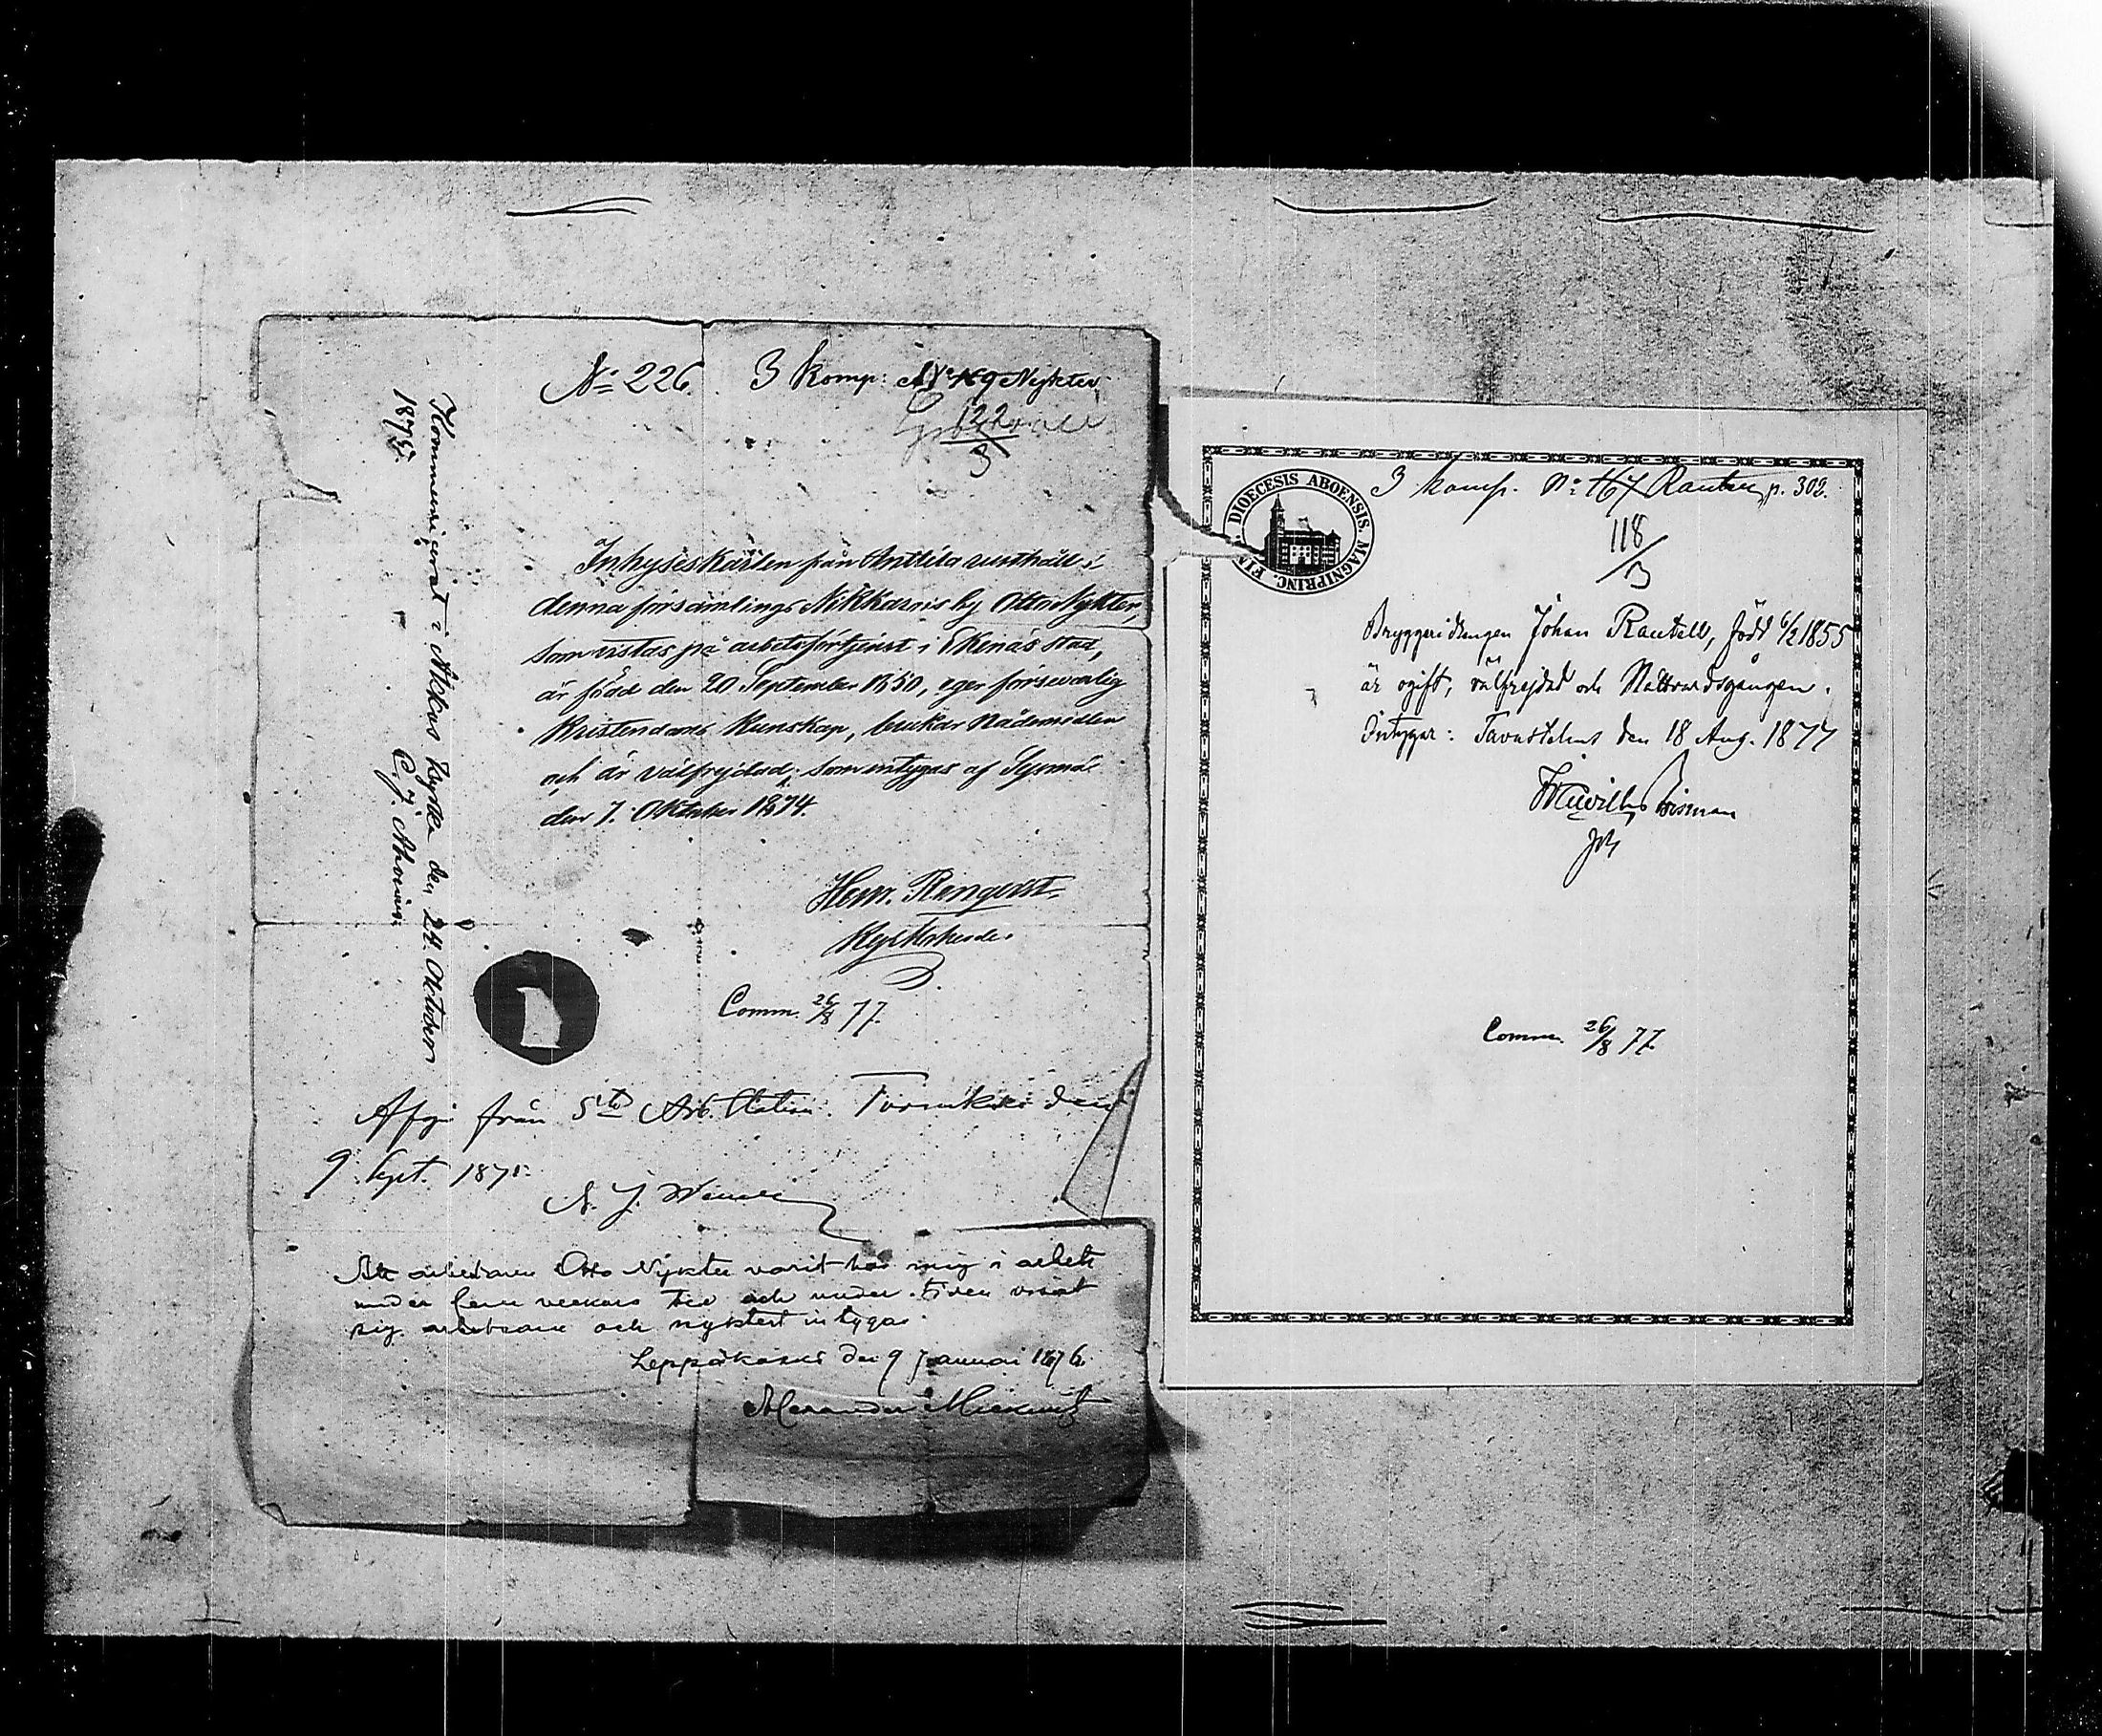 No 226. 3 Komp: No 169 Nykter,
122
3
Inhyseskarlen från Anttila rusthåll i
denna församlings Nikkarois by Otto Nykter,
som vistas på arbetsförtjenst i Ekenäs stad,
är född den 20 September 1850, eger försvarlig
Kristendoms Kunskap, brukar Nådemedlen
och är välfrejdad; som intygas af Sysmä
den 7. Oktober 1874.
Hem. Renqvist,
Comm. 26/8 77.
Kommunicerat i Kyrka den 24. Oktober
1875.
C. J.
från 5te Arb. Station. den
9. Sept. 1875.
Att arbetaren Otto Nykter varit hos mig i arbete
under fem veckors tid och under tiden visat
sig arbetsam och nyktert intygar
Leppäkoski den 9 Januari 1876.
Alexander
DIOECESIS ABOENSIS. MAGNIPRINC. FIN
3 komp. No 167 p. 302.
118
3
Bryggeridrengen Johan Rautell, född 6/2 1855
är ogift, välfrejdad och Nattvardsgången.
Intygar: Tavastehus den 18 Aug. 1877
Comm. 26/8 77.